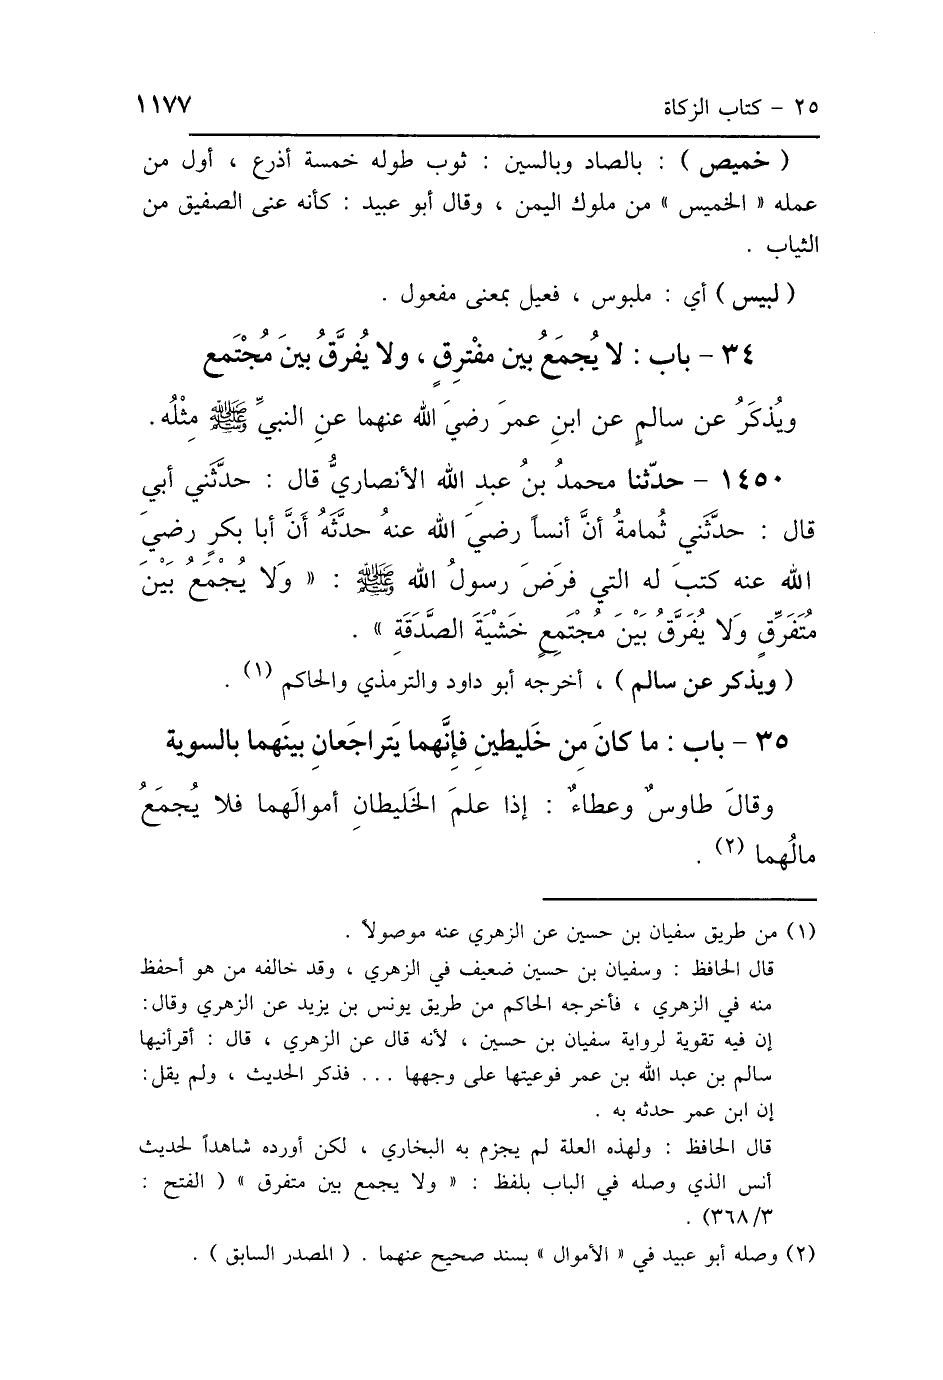 ٢٥ - كتاب الزكاة ١١٧٧
( خميص ) : بالصاد وبالسين : ثوب طوله خمسة أذرع ، أول من
عمله « الخميس » من ملوك اليمن ، وقال أبو عبيد : كأنه عنى الصفيق من
الثياب .
( لبيس ) أي : ملبوس ، فعيل بمعنى مفعول .
٣٤ - باب : لا يُجمَعُ بين مفْترِقٍ ، ولا يُفرَّقُ بينَ مُجْتَمِعٍ
ويُذكَرُ عن سالمٍ عن ابنِ عمرَ رضيَ الله عنهما عنِ النبيِّ ﷺ مثْلُه .
١٤٥٠ - حدّثنا محمدُ بنُ عبدِ الله الأنصاريُّ قال : حدَّثَني أبي
قال : حدَّثَني ثُمامةُ أنَّ أنساً رضيَ الله عنهُ حدَّثَهُ أَنَّ أبا بكرٍ رضيَ
الله عنه كتبَ له التي فرَضَ رسولُ الله ﷺ : « وَلا يُجْمَعُ بَيْنَ
مُتَفَرِّقٍ وَلا يُفَرَّقُ بَيْنَ مُجْتَمِعٍ خَشْيَةَ الصَّدَقَةِ » .
( ويذكر عن سالم ) ، أخرجه أبو داود والترمذي والحاكم (١) .
٣٥ - باب : ما كانَ مِن خَليطينِ فإنَّهما يَتراجَعانِ بينَهما بالسوية
وقالَ طاوسٌ وعطاءٌ : إذا علمَ الخَليطانِ أموالَهما فلا يُجمَعُ
مالُهما (٢) .
(١) من طريق سفيان بن حسين عن الزهري عنه موصولاً .
قال الحافظ : وسفيان بن حسين ضعيف في الزهري ، وقد خالفه من هو أحفظ
منه في الزهري ، فأخرجه الحاكم من طريق يونس بن يزيد عن الزهري وقال :
إن فيه تقوية لرواية سفيان بن حسين ، لأنه قال عن الزهري ، قال : أقرأنيها
سالم بن عبد الله بن عمر فوعيتها على وجهها ... فذكر الحديث ، ولم يقل :
إن ابن عمر حدثه به .
قال الحافظ : ولهذه العلة لم يجزم به البخاري ، لكن أورده شاهداً لحديث
أنس الذي وصله في الباب بلفظ : « ولا يجمع بين متفرق » ( الفتح :
٣٦٨/٣) .
(٢) وصله أبو عبيد في « الأموال » بسند صحيح عنهما . ( المصدر السابق ) .